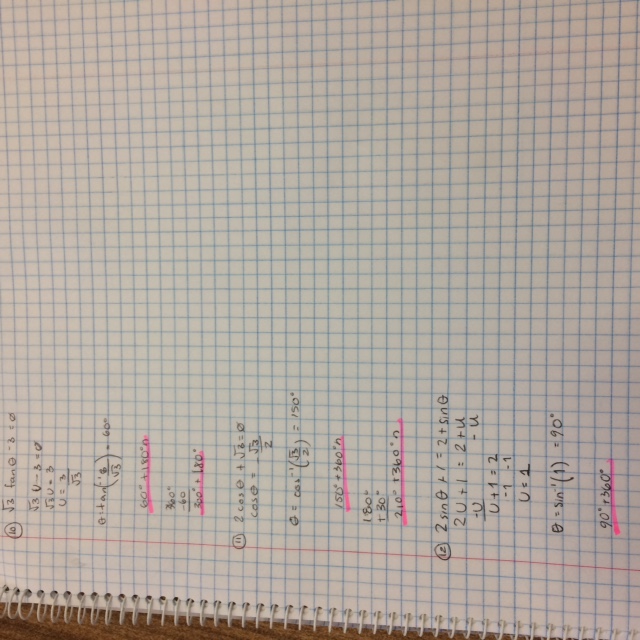 10 √3 tan θ - 3 = 0
√3 U - 3 = 0
√3 U = 3
U = 3/√3
θ = tan⁻¹(3/√3) = 60°
60° + 180°n
360°
11 2 cos θ + √3 = 0
cos θ = -√3/2
θ = cos⁻¹(√3/2) = 150°
180°
+30°
210° + 360°n
12 2 sin θ + 1 = 2 + sin θ
2U + 1 = 2 + U
-U - U
U + 1 = 2
-1 -1
U = 1
θ = sin⁻¹(1) = 90°
90° + 360°